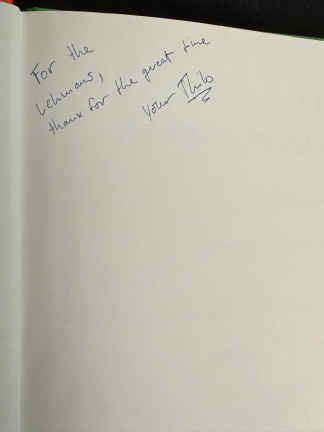 For the
Lehmans,
thanx for the great time
Your Thilo